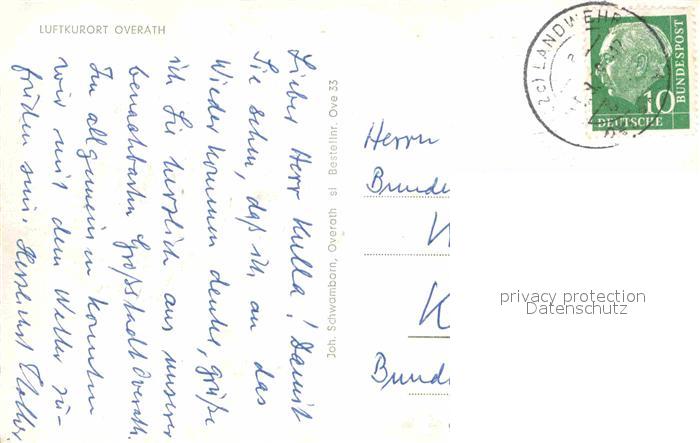 LUFTKURORT OVERATH
Lieber Herr Kulla! Damit
Sie sehen, daß ich an das
Wiederkommen denke, grüße
ich Sie herzlich aus unserer
benachbarten Großstadt Overath.
Im allgemeinen konnten
wir mit dem Wetter zu-
frieden sein. Herzlichst
Joh. Schwamborn, Overath sl Bestellnr. Ove 33
LANDWEHR
10
DEUTSCHE
BUNDESPOST
Herrn
Bunde
K
Bund
privacy protection
Datenschutz